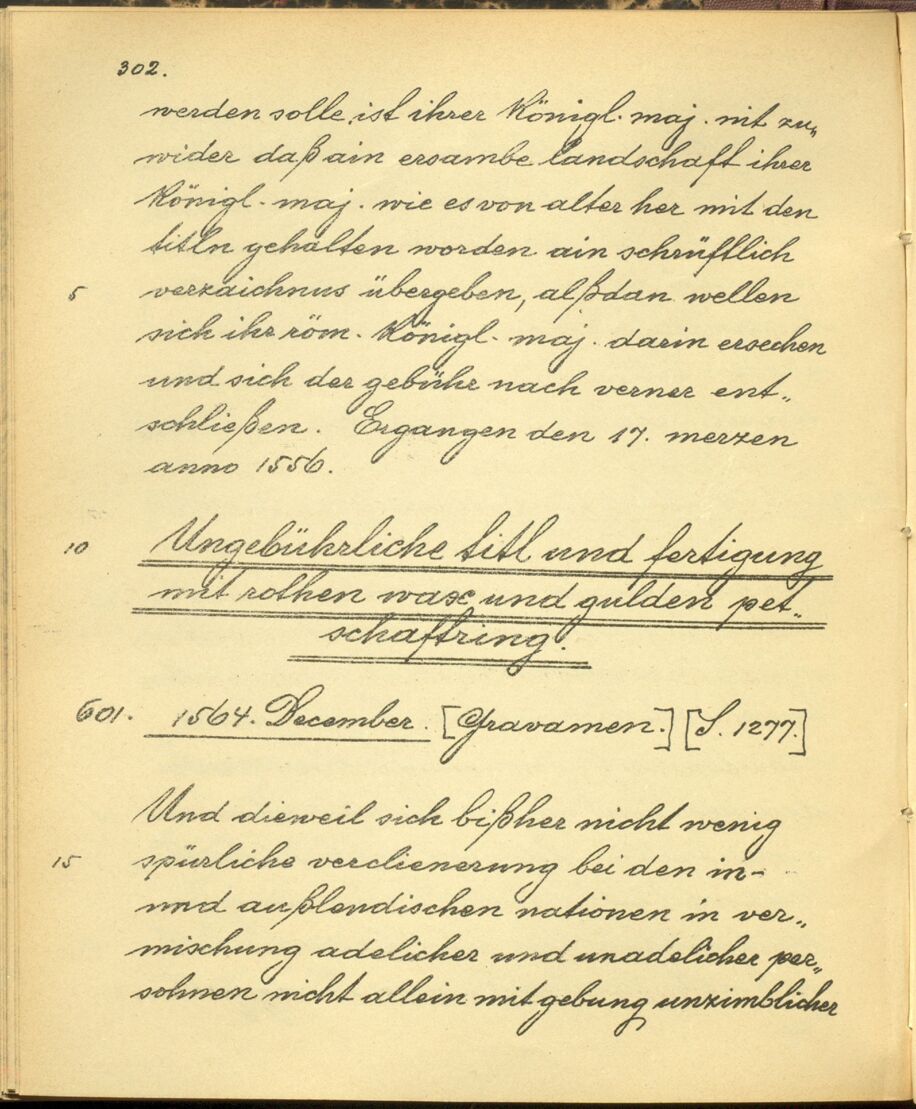 302.
werden solle, ist ihrer Königl. maj. nit zu„
wider daß ain ersambe landschaft ihrer
Königl. maj. wie es von alter her mit den
titln gehalten worden ain schrüftlich
5 verzaichnus übergeben, alßdan wellen
sich ihr röm. Königl. maj. darin ersechen
und sich der gebühr nach verner ent„
schließen. Ergangen den 17. merzen
anno 1556.
10 Ungebührliche titl und fertigung
mit rothen wax und gulden pet„
schaftring.
601. 1564. December. [Gravamen.] [S. 1277.]
Und dieweil sich bißher nicht wenig
15 spürliche verclienerung bei den in-
und außlendischen nationen in ver„
mischung adelicher und unadelicher per„
sohnen nicht allein mit gebung unzimblicher